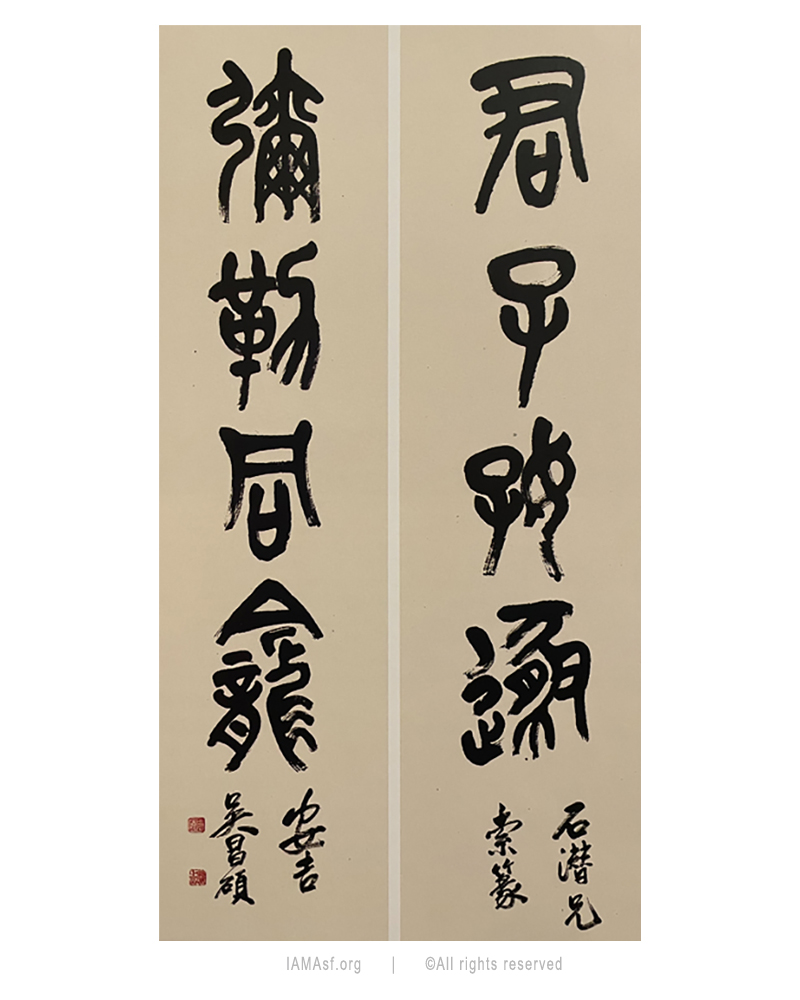 君子好遯
石潛兄
索篆
彌勒同龕
安吉
吳昌碩
IAMAsf.org | ©All rights reserved